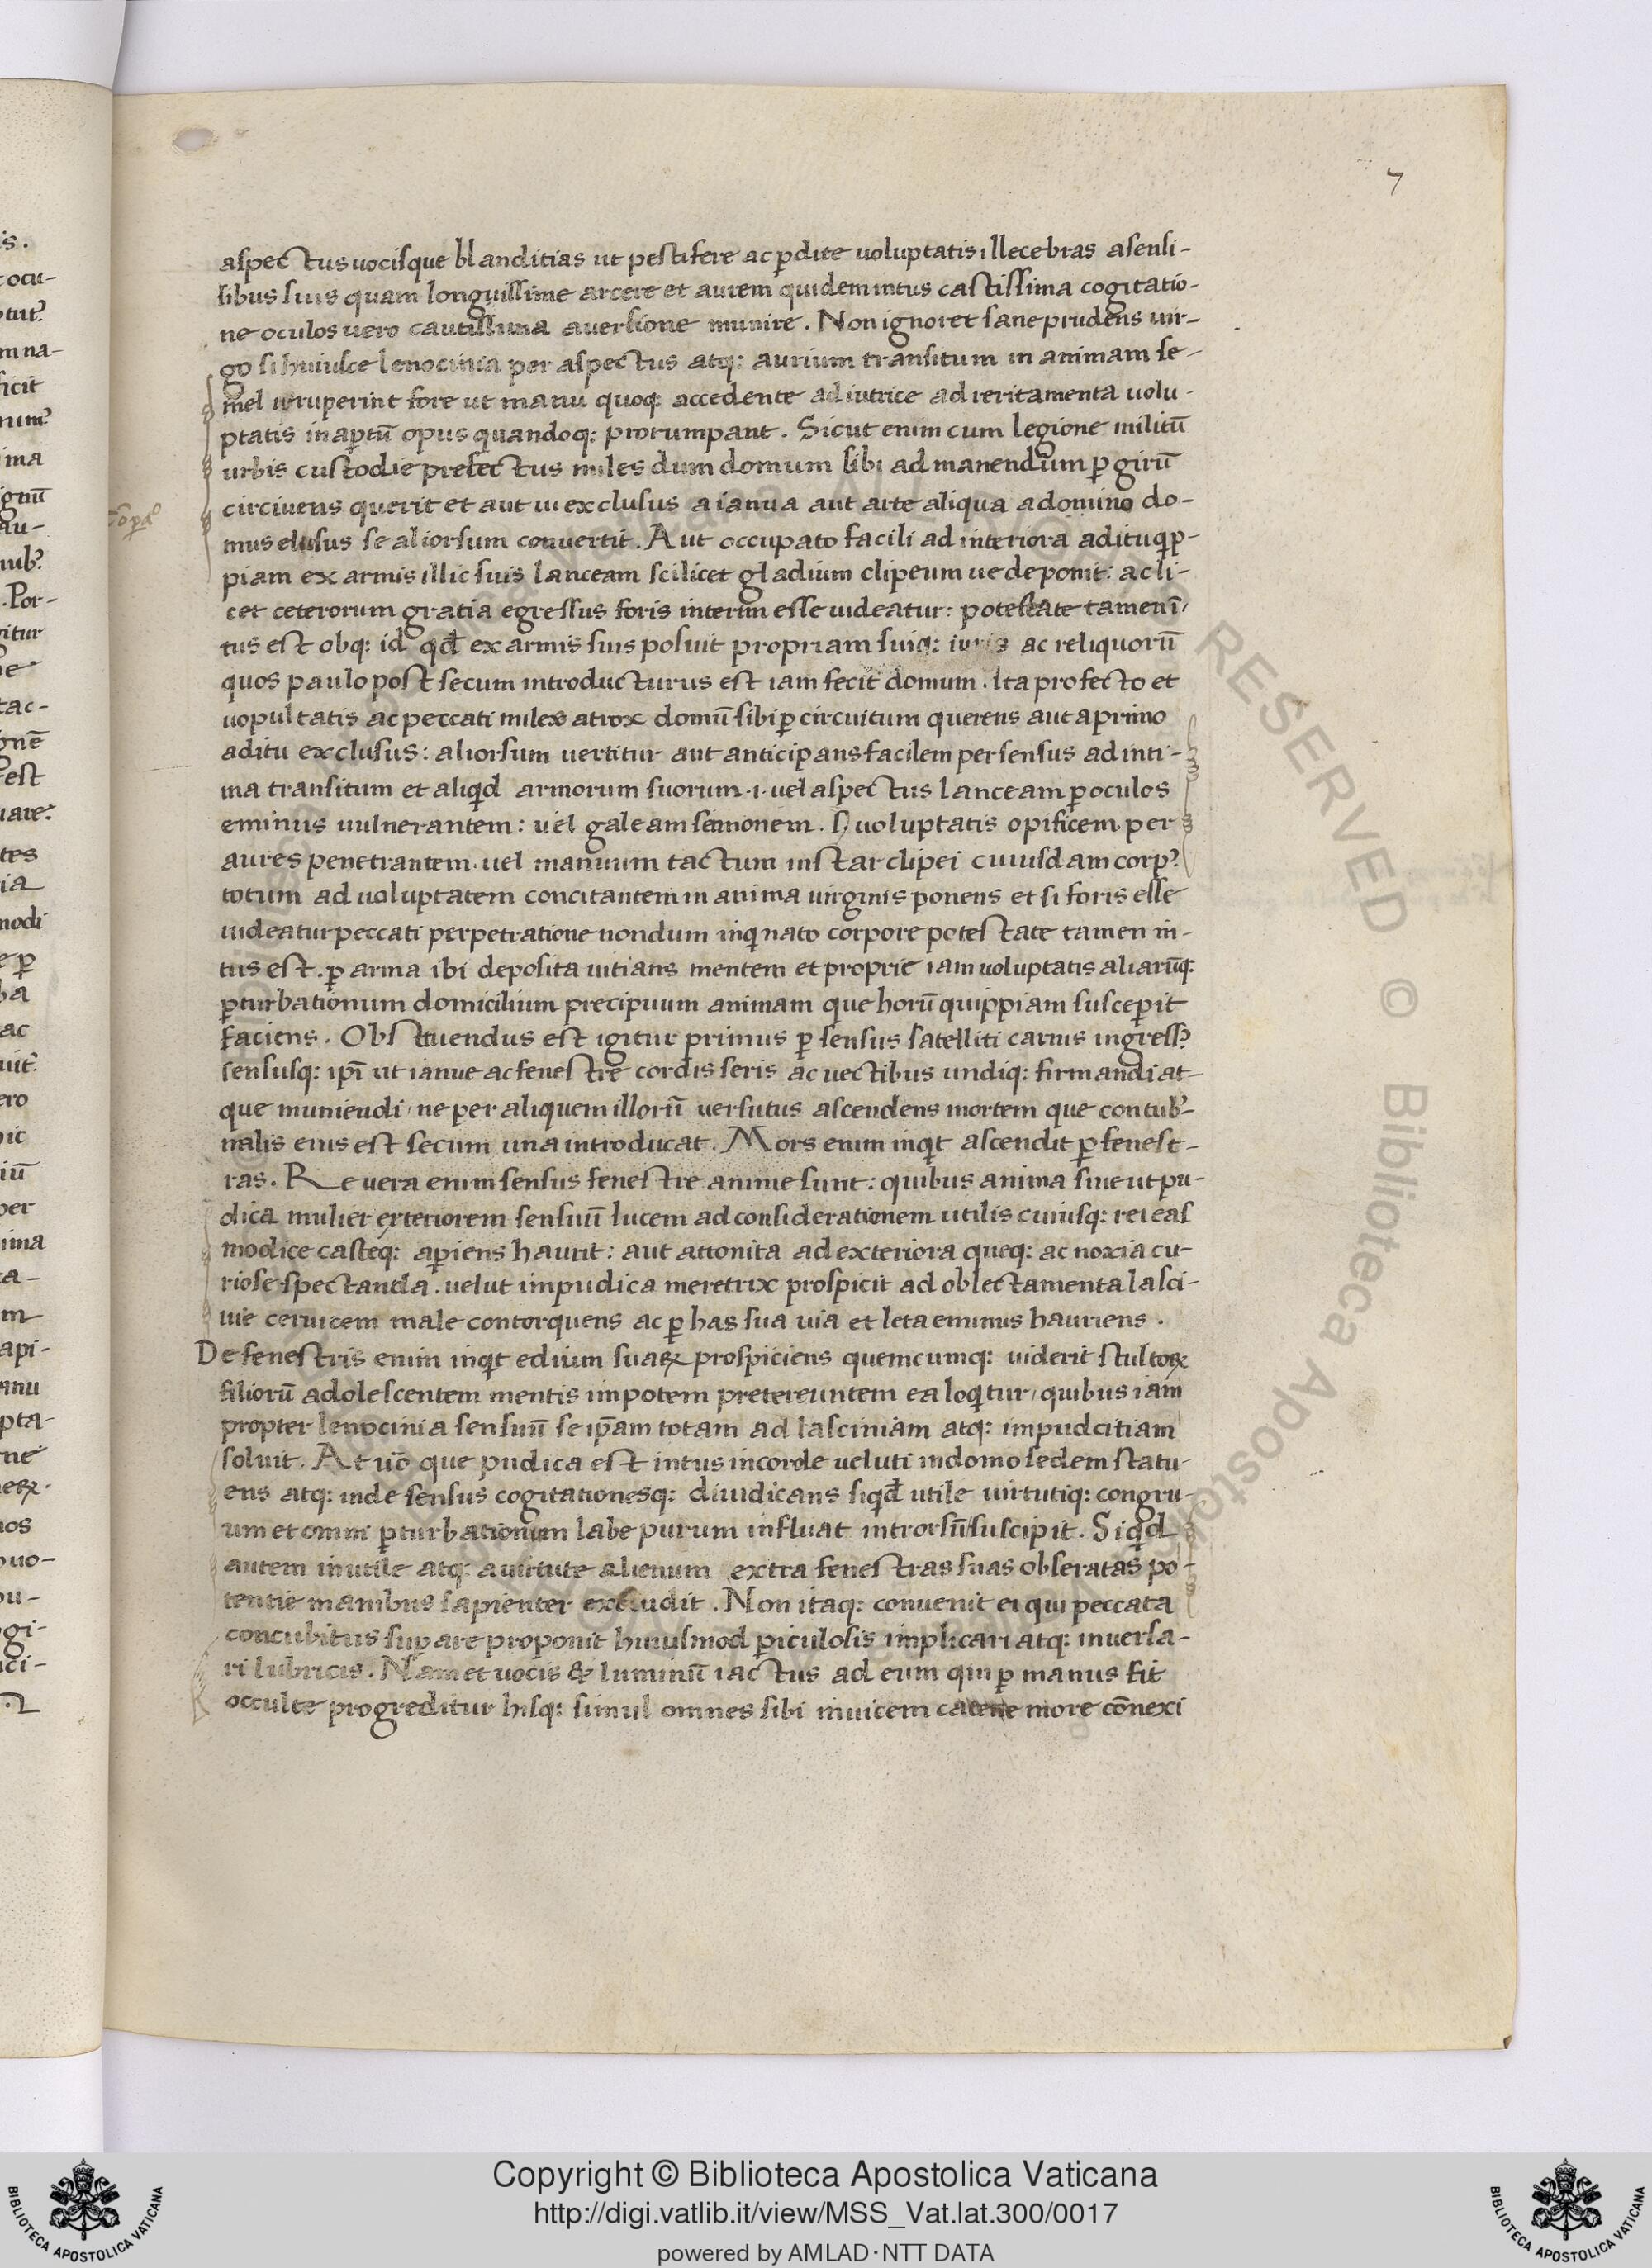 7
aspectus uocisque blanditias ut pestifere ac ꝑdite uoluptatis illecebras a sensi-
libus suis quam longuissime arcere et aurem quidem intus castissima cogitatio-
ne oculos uero cautissima auersione munire. Non ignoret sane prudens uir-
go si huiusce lenocinia per aspectus atq: aurium transitum in animam se-
mel irruperint fore ut manu quoq: accedente adiutrice ad ueritamenta uolu-
ptatis in aꝑtū opus quandoq: prorumpant. Sicut enim cum legione militū
urbis custodie prefectus miles dum domum sibi ad manendum ꝑ girū
circiuens querit et aut ui exclusus a ianua aut arte aliqua a domino do-
mus elusus se aliorsum conuertit. Aut occupato facili ad interiora aditu
piam ex armis illic suis lanceam scilicet gladium clipeum ue deponit: ac li-
cet ceterorum gratia egressus foris interim esse uideatur: potestate tamen ī
tus est obq: id qđ ex armis suis posuit propriam suiq: iuris ac reliquorū
quos paulo post secum introducturus est iam fecit domum. Ita profecto et
uopultatis ac peccati miles atrox domū sibi ꝑ circuitum querens aut a primo
aditu exclusus: aliorsum uertitur aut anticipans facilem per sensus ad inti-
ma transitum et aliqđ armorum suorum .i. uel aspectus lanceam ꝑ oculos
eminus uulnerantem: uel galeam semonem. s. uoluptatis opificem per
aures penetrantem. uel manuum tactum instar clipei cuiusdam corpꝰ
totum ad uoluptatem concitantem in anima uirginis ponens et si foris esse
uideatur peccati perpetratione nondum inqinato corpore potestate tamen in-
tus est. ꝑ arma ibi deposita uitians mentem et proprie iam uoluptatis aliarūq:
ꝑturbationum domicilium precipuum animam que horū quippiam susceꝑit
faciens. Obstruendus est igitur primus ꝑ sensus satelliti carnis ingressꝰ
sensusq: ip̄i ut ianue ac fenestre cordis seris ac uectibus undiq: firmandi at-
que muniendi / ne per aliquem illorū uersutus ascendens mortem que contub-
nalis eius est secum una introducat. Mors enim inqit ascendit ꝑ fenest-
ras. Re uera enim sensus fenestre anime sunt: quibus anima siue ut pu-
dica mulier exteriorem sensuū lucem ad considerationem utilis cuiusq: rei eas
modice casteq: aꝑiens haurit: aut attonita ad exteriora queq: ac noxia cu-
riose spectanda. uelut impudica meretrix prospicit ad oblectamenta lasci-
uie ceruicem male contorquens ac ꝑ has sua uia et leta eminus hauriens.
De fenestris enim inqit edium suaꝝ prospiciens quemcumq: uiderit stultoꝝ
filiorū adolescentem mentis impotem pretereuntem ea loqitur / quibus iam
propter lenocinia sensuū se ip̄am totam ad lasciniam atq: impudcitiam
soluit. At uō que pudica est intus in corde ueluti in domo sedem statu-
ens atq: inde sensus cogitationesq: diuidicans siqđ utile uirtutiq: congru-
um et omni ꝑturbationum labe purum influat introrsū suscipit. Siqđ
autem inutile atq: a uirtute alienum extra fenestras suas obseratas po-
tentie manibus sapienter excludit. Non itaq: conuenit ei qui peccata
concubitus suꝑare proponit huiusmod ꝑiculosis implicari atq: inuersa-
ri lubricis. Nam et uocis & luminū iactus ad eum qui ꝑ manus fit
occulte progreditur hisq: simul omnes sibi inuicem catene more cōnexi
Copyright © Biblioteca Apostolica Vaticana
http://digi.vatlib.it/view/MSS_Vat.lat.300/0017
powered by AMLAD·NTT DATA
BIBLIOTECA APOSTOLICA VATICANA
BIBLIOTECA APOSTOLICA VATICANA